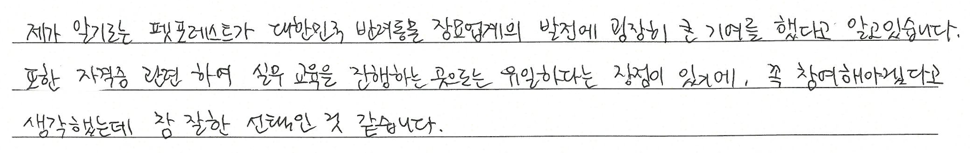 제가 알기로는 펫포레스트가 대한민국 반려동물 장묘업계의 발전에 굉장히 큰 기여를 했다고 알고있습니다.
또한 자격증 관련 하여 실무 교육을 진행하는 곳으로는 유일하다는 장점이 있기에, 꼭 참여해야겠다고
생각했는데 참 잘한 선택인 것 같습니다.